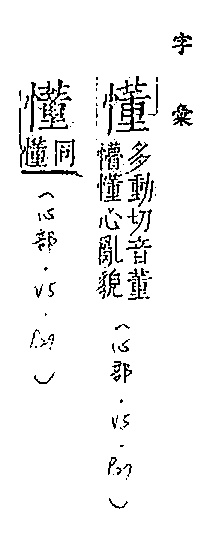 字彙
懂
多動切音董
懵懂心亂貌
（心部．V5．P.27）
同
懂
（心部．V5．P.29）